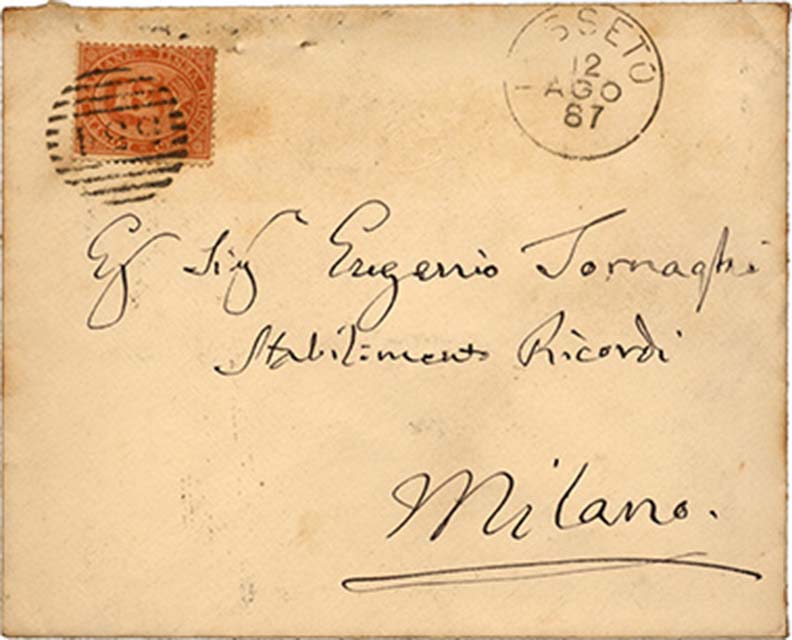 SSETO
12
AGO
87
Eg Sig Eugenio Tornaghi
Stabilimento Ricordi
Milano.